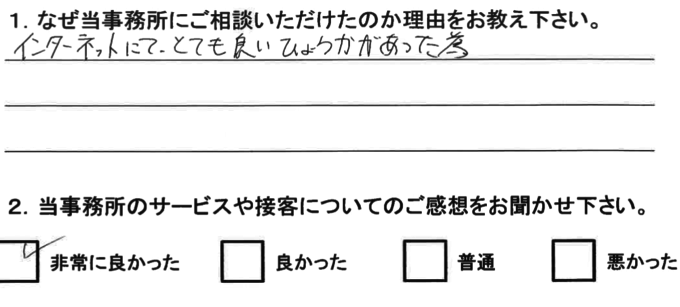 1. なぜ当事務所にご相談いただけたのか理由をお教え下さい。
インターネットにて、とても良いひょうかがあった為
2. 当事務所のサービスや接客についてのご感想をお聞かせ下さい。
非常に良かった 良かった 普通 悪かった